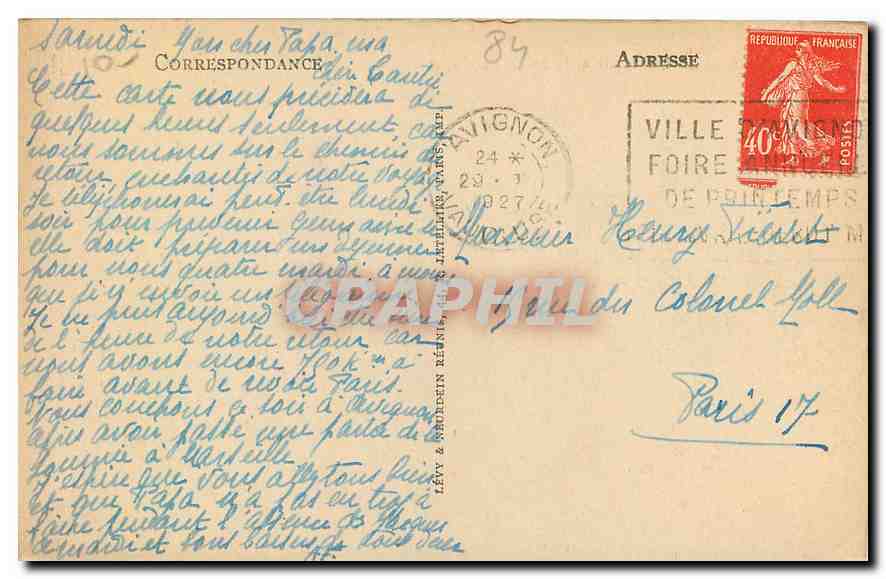 Samedi Mon cher Papa, ma
chère Tante,
CORRESPONDANCE
84
10
ADRESSE
Cette carte vous précèdera de
quelques heures seulement car
nous sommes sur le chemin de
retour, enchantés de notre voyage
Je téléphonerai peut être lundi
soir pour prévenir
elle doit préparer un déjeuner
pour nous quatre mardi à
que je n'envoie un
Je ne puis aujourd
de l'heure de notre retour car
nous avons encore 700 km à
faire avant de revoir Paris.
Nous couchons ce soir à Avignon
après avoir passé une partie de la
journée à Marseille
J'espère que vous allez tous bien
et que Papa n'a pas eu trop à
faire pendant l'absence de
à mardi et bons baisers de
RÉPUBLIQUE FRANÇAISE
40c
POSTES
AVIGNON
24 *
29 -
1927
VILLE D'AVIGNON
FOIRE ANNUELLE
DE PRINTEMPS
Monsieur Henry
rue du Colonel Moll
Paris 17
LÉVY & NEURDEIN RÉUNIS, 44, R. LETELLIER, PARIS, IMP.
CPAPHIL